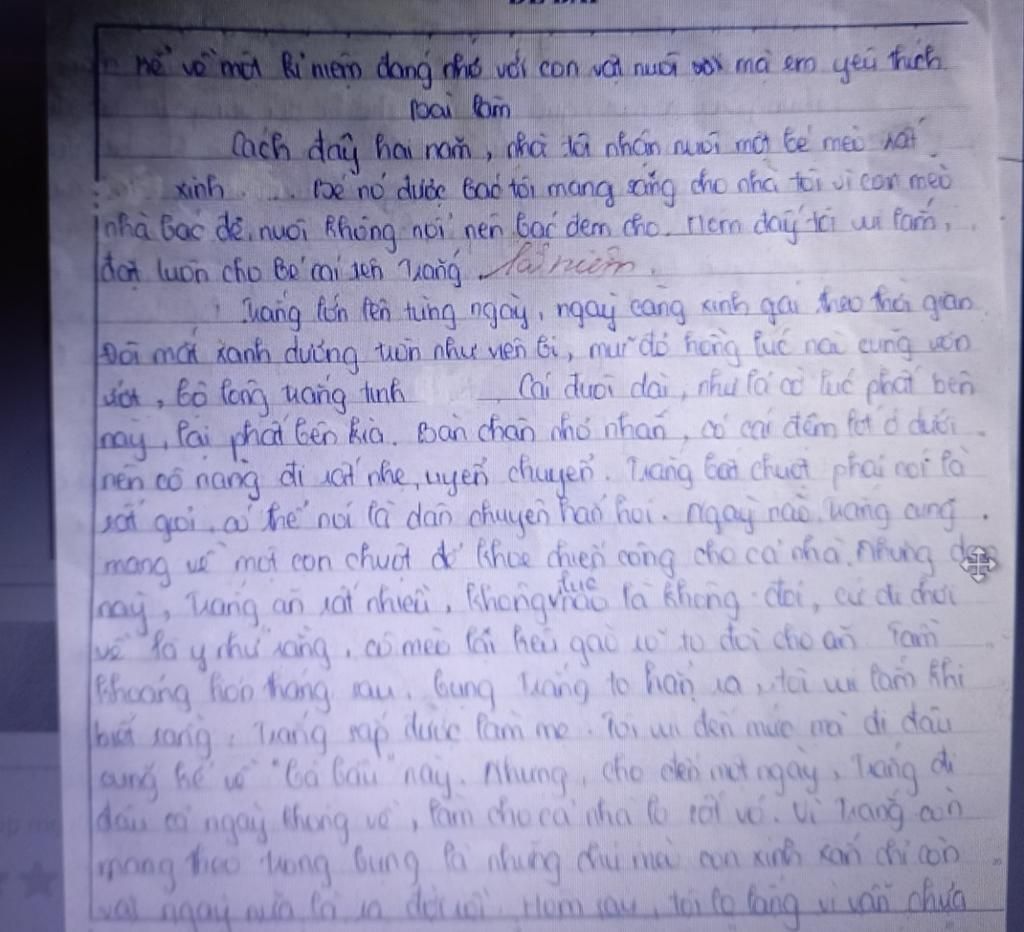 kể về một kỉ niệm đáng nhớ với con vật nuôi mà em yêu thích
Bài làm
Cách đây hai năm, nhà tôi nhận nuôi một bé mèo rất
xinh. Bé nó được bác tôi mang sang cho nhà tôi vì con mèo
nhà bác đẻ, nuôi không nổi nên bác đem cho. Hôm đấy tôi vui lắm,
đặt luôn cho bé cái tên Trắng.
Trắng lớn lên từng ngày, ngày càng xinh gái theo thời gian.
Đôi mắt xanh dương tròn như viên bi, mũi đỏ hồng lúc nào cũng ươn
ướt, bộ lông trắng tinh. Cái đuôi dài, như lá cờ lúc phất bên
này, lại phất bên kia. Bàn chân nhỏ nhắn, có cái đệm thịt ở dưới
nên cô nàng đi rất nhẹ, uyển chuyển. Trắng bắt chuột phải nói là
rất giỏi, có thể nói là dân chuyên hẳn hoi. Ngày nào Trắng cũng
mang về một con chuột để khoe chiến công cho cả nhà. Nhưng dạo
này, Trắng ăn rất nhiều, không lúc nào là không đói, cứ đi chơi
về là y như rằng, cô mèo lại kêu gào to đòi cho ăn. Tầm
khoảng hơn tháng sau, bụng Trắng to hẳn ra, tôi vui lắm khi
biết rằng, Trắng sắp được làm mẹ. Tôi vui đến mức mà đi đâu
cũng kể về "bà bầu" này. Nhưng, cho đến một ngày, Trắng đi
đâu cả ngày không về, làm cho cả nhà lo sốt vó. Vì Trắng còn
mang theo trong bụng là những chú mèo con xinh xắn chỉ còn
vài ngày nữa là ra đời rồi. Hôm sau, tôi lo lắng vì vẫn chưa